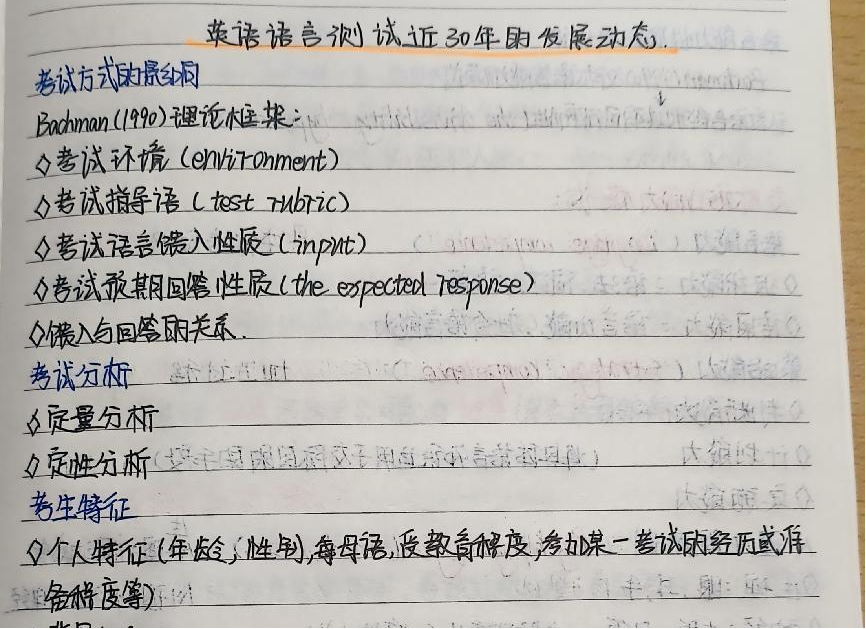 英语语言测试近30年的发展动态.
考试方式的影响
Bachman(1990)理论框架:
◇考试环境(environment)
◇考试指导语(test rubric)
◇考试语言馈入性质(input)
◇考试预期回答性质(the expected response)
◇馈入与回答的关系.
考试分析
◇定量分析
◇定性分析
考生特征
◇个人特征(年龄,性别,母语,受教育程度,参加某一考试的经历或准
备程度等)